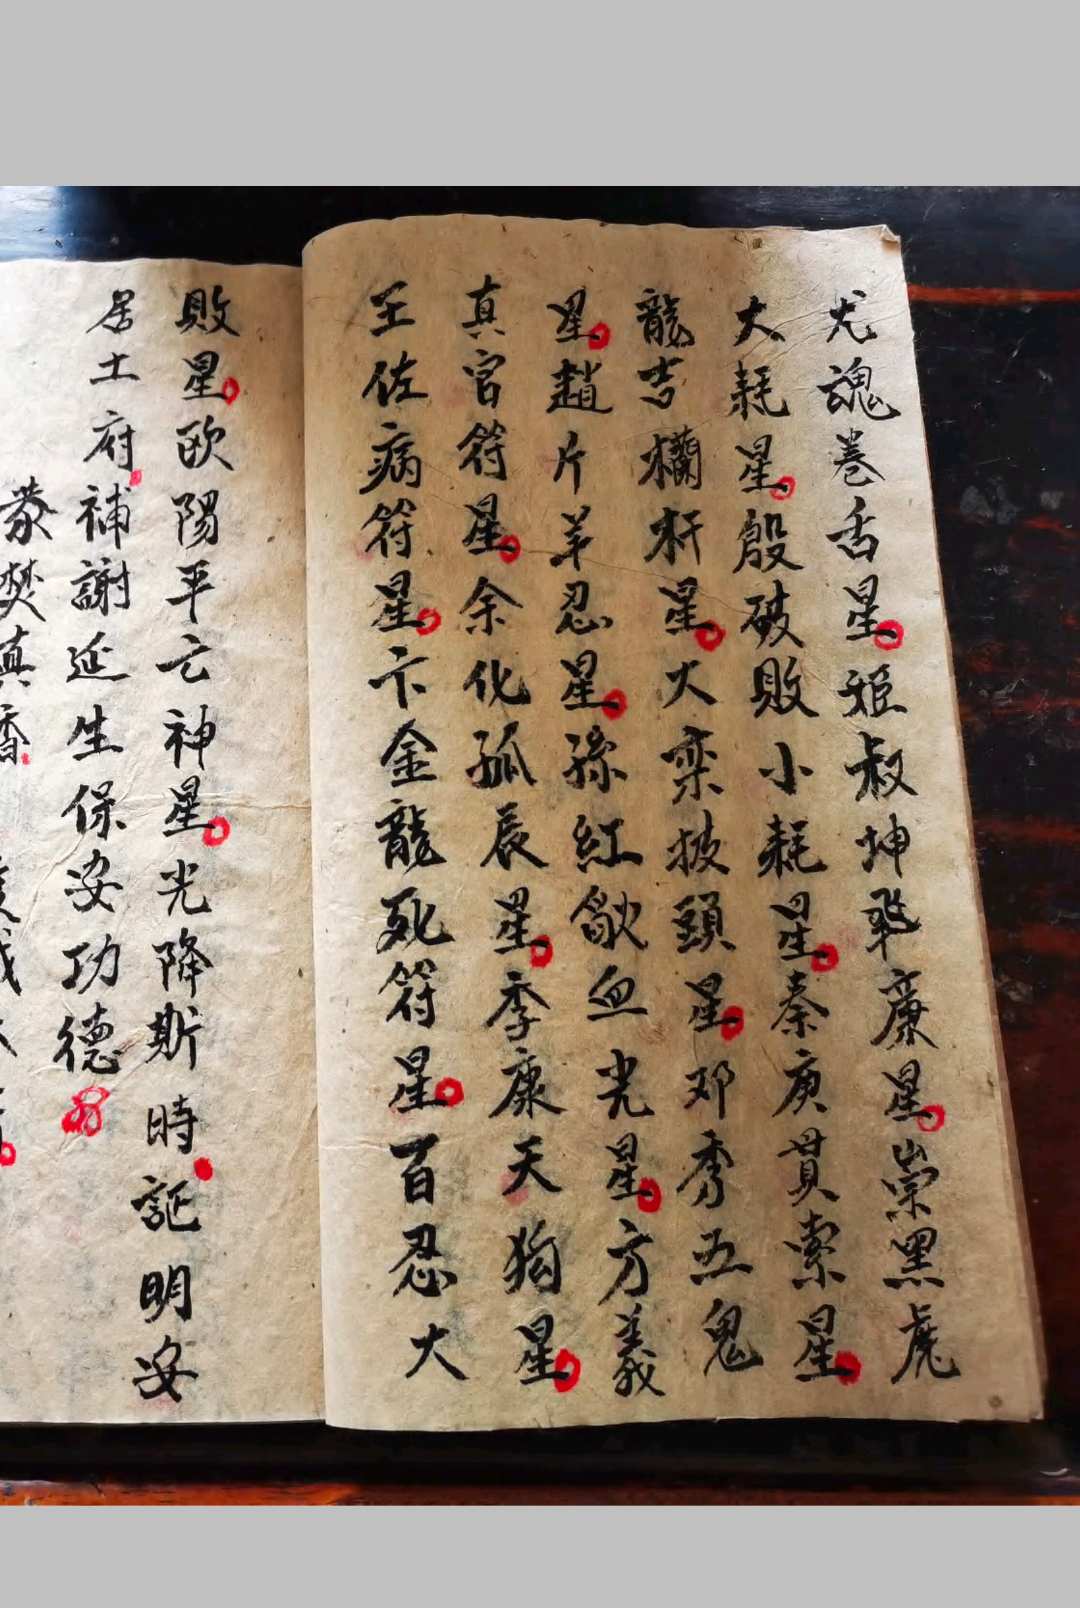 尤魂卷舌星姬叔坤飛廉星崇黑虎
大耗星殷破敗小耗星秦庚貫索星
龍吉欄杆星大栾披頭星邓秀五鬼
星趙片羊忍星孫紅歙血光星方義
真官符星余化孤辰星季康天狗星
王佐病符星卞金龍死符星百忍大
敗星欧陽平亡神星光降斯時証明安
居土府補謝延生保安功德
恭焚真香